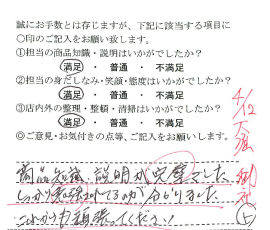 誠にお手数とは存じますが、下記に該当する項目に
○印のご記入をお願い致します。
①担当の商品知識・説明はいかがでしたか？
満足 ・ 普通 ・ 不満足
②担当の身だしなみ・笑顔・態度はいかがでしたか？
満足 ・ 普通 ・ 不満足
③店内外の整理・整頓・清掃はいかがでしたか？
満足 ・ 普通 ・ 不満足
◎ご意見・お気付きの点等、ご記入をお願いします。
商品知識、説明が完璧でした。
しっかり勉強されてるのが分かりました
これからも頑張ってください！
4/12